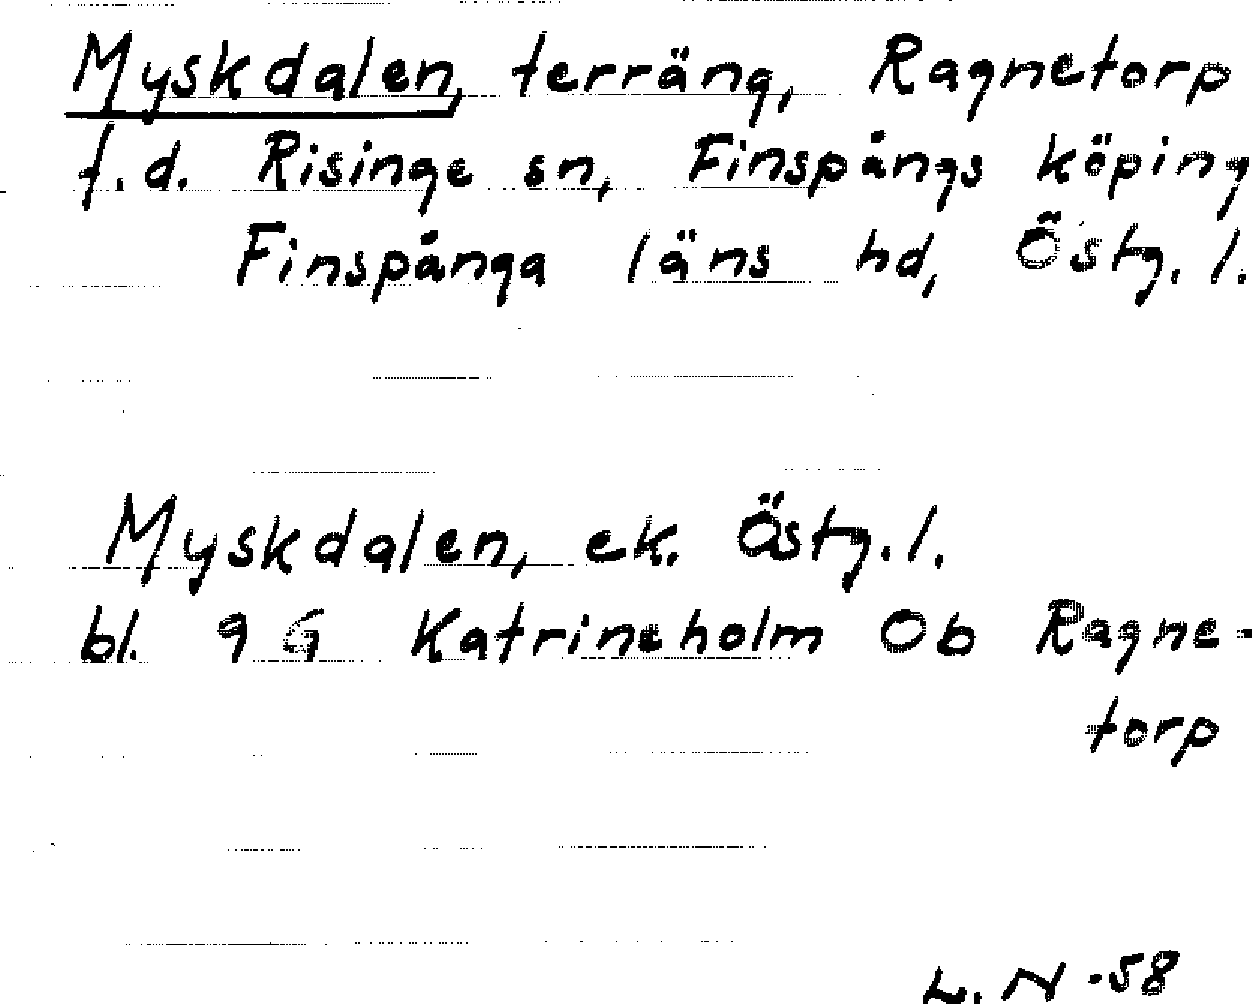 Myskdalen, terräng, Ragnetorp
f.d. Risinge sn, Finspångs köping
Finspånga läns hd, Östg. l.
Myskdalen, ek. Östg. l.
bl. 9 G Katrineholm Ob Ragne-
torp
L. N -58